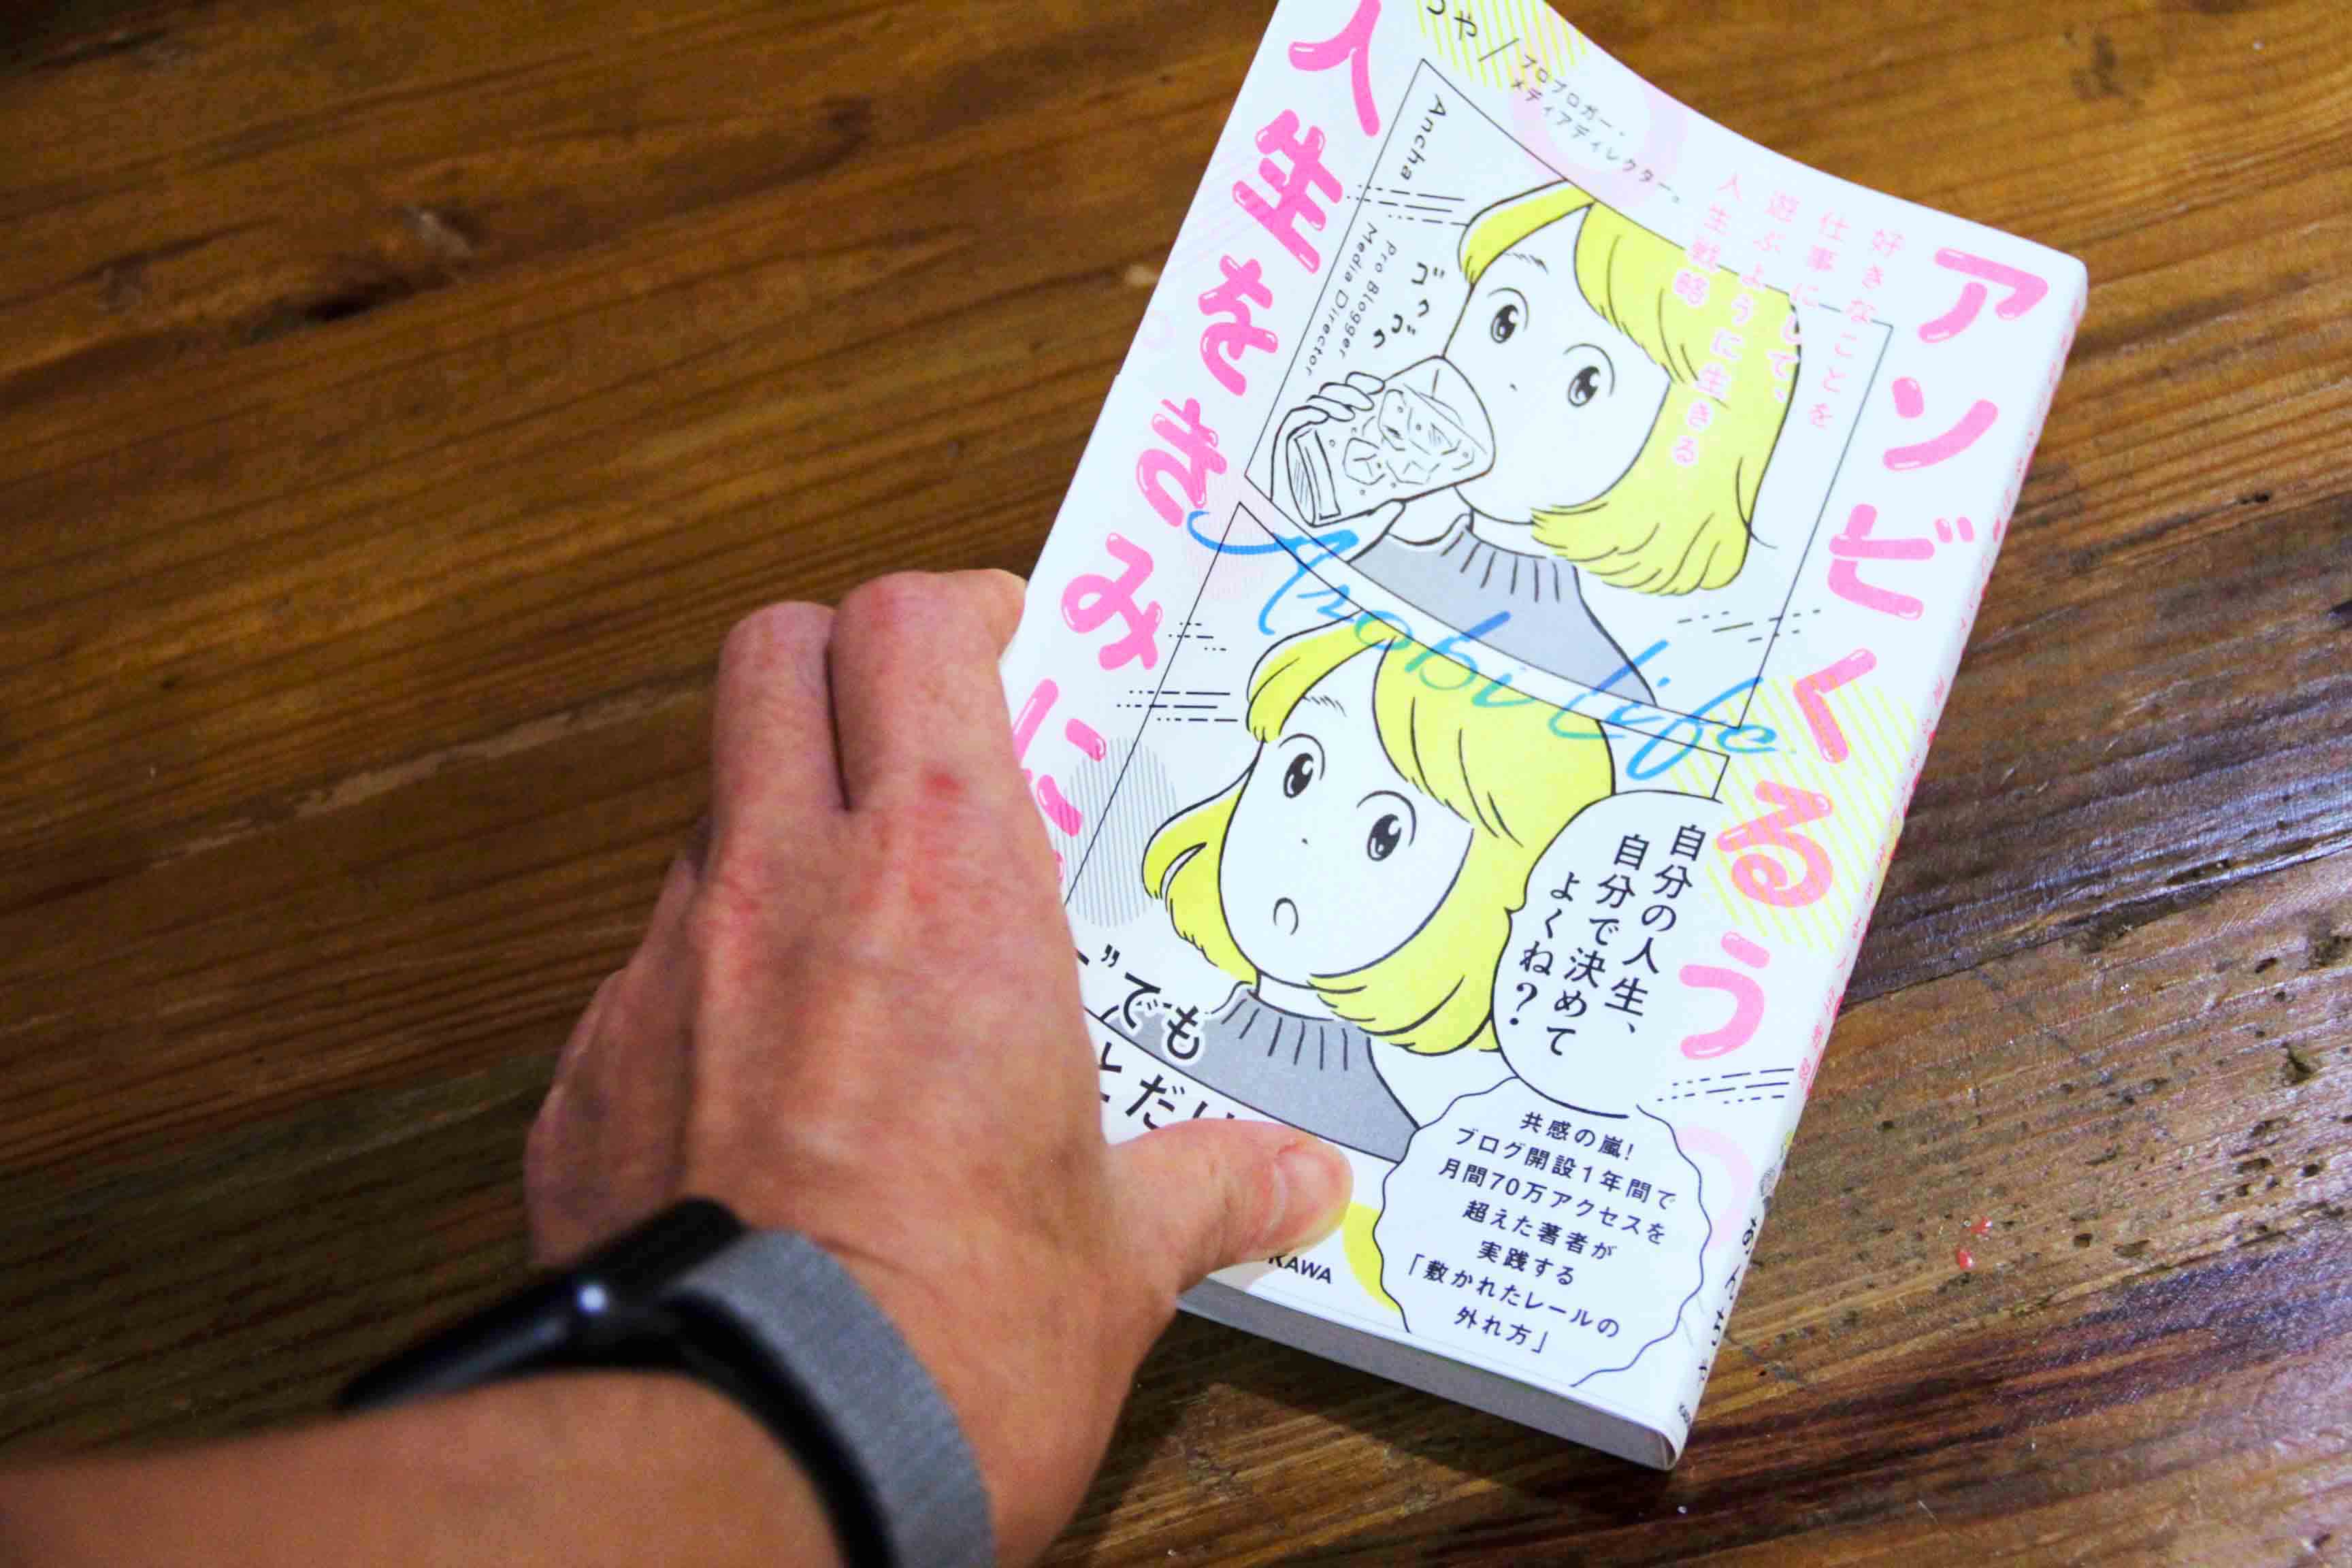 アソビくるう
人生をきみに
好きなことを
仕事にして、
遊ぶように生きる
人生戦略
プロブロガー・
メディアディレクター。
Ancha
Pro Blogger
Media Director
ゴクゴク
Asobi life
自分の人生、
自分で決めて
よくね?
”でも
共感の嵐!
ブログ開設1年間で
月間70万アクセスを
超えた著者が
実践する
「敷かれたレールの
外れ方」
KAWA
あんちゃ